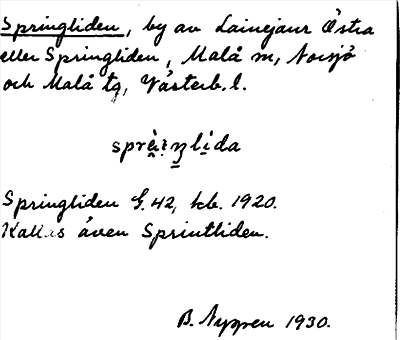 Springliden, by av Lainejaur Östra
eller Springliden, Malå sn, Norsjö
och Malå tg, Västerb. l.
sprìŋlida
Springliden G. 42, kb. 1920.
Kallas även Sprintliden.
B. Nygren 1930.